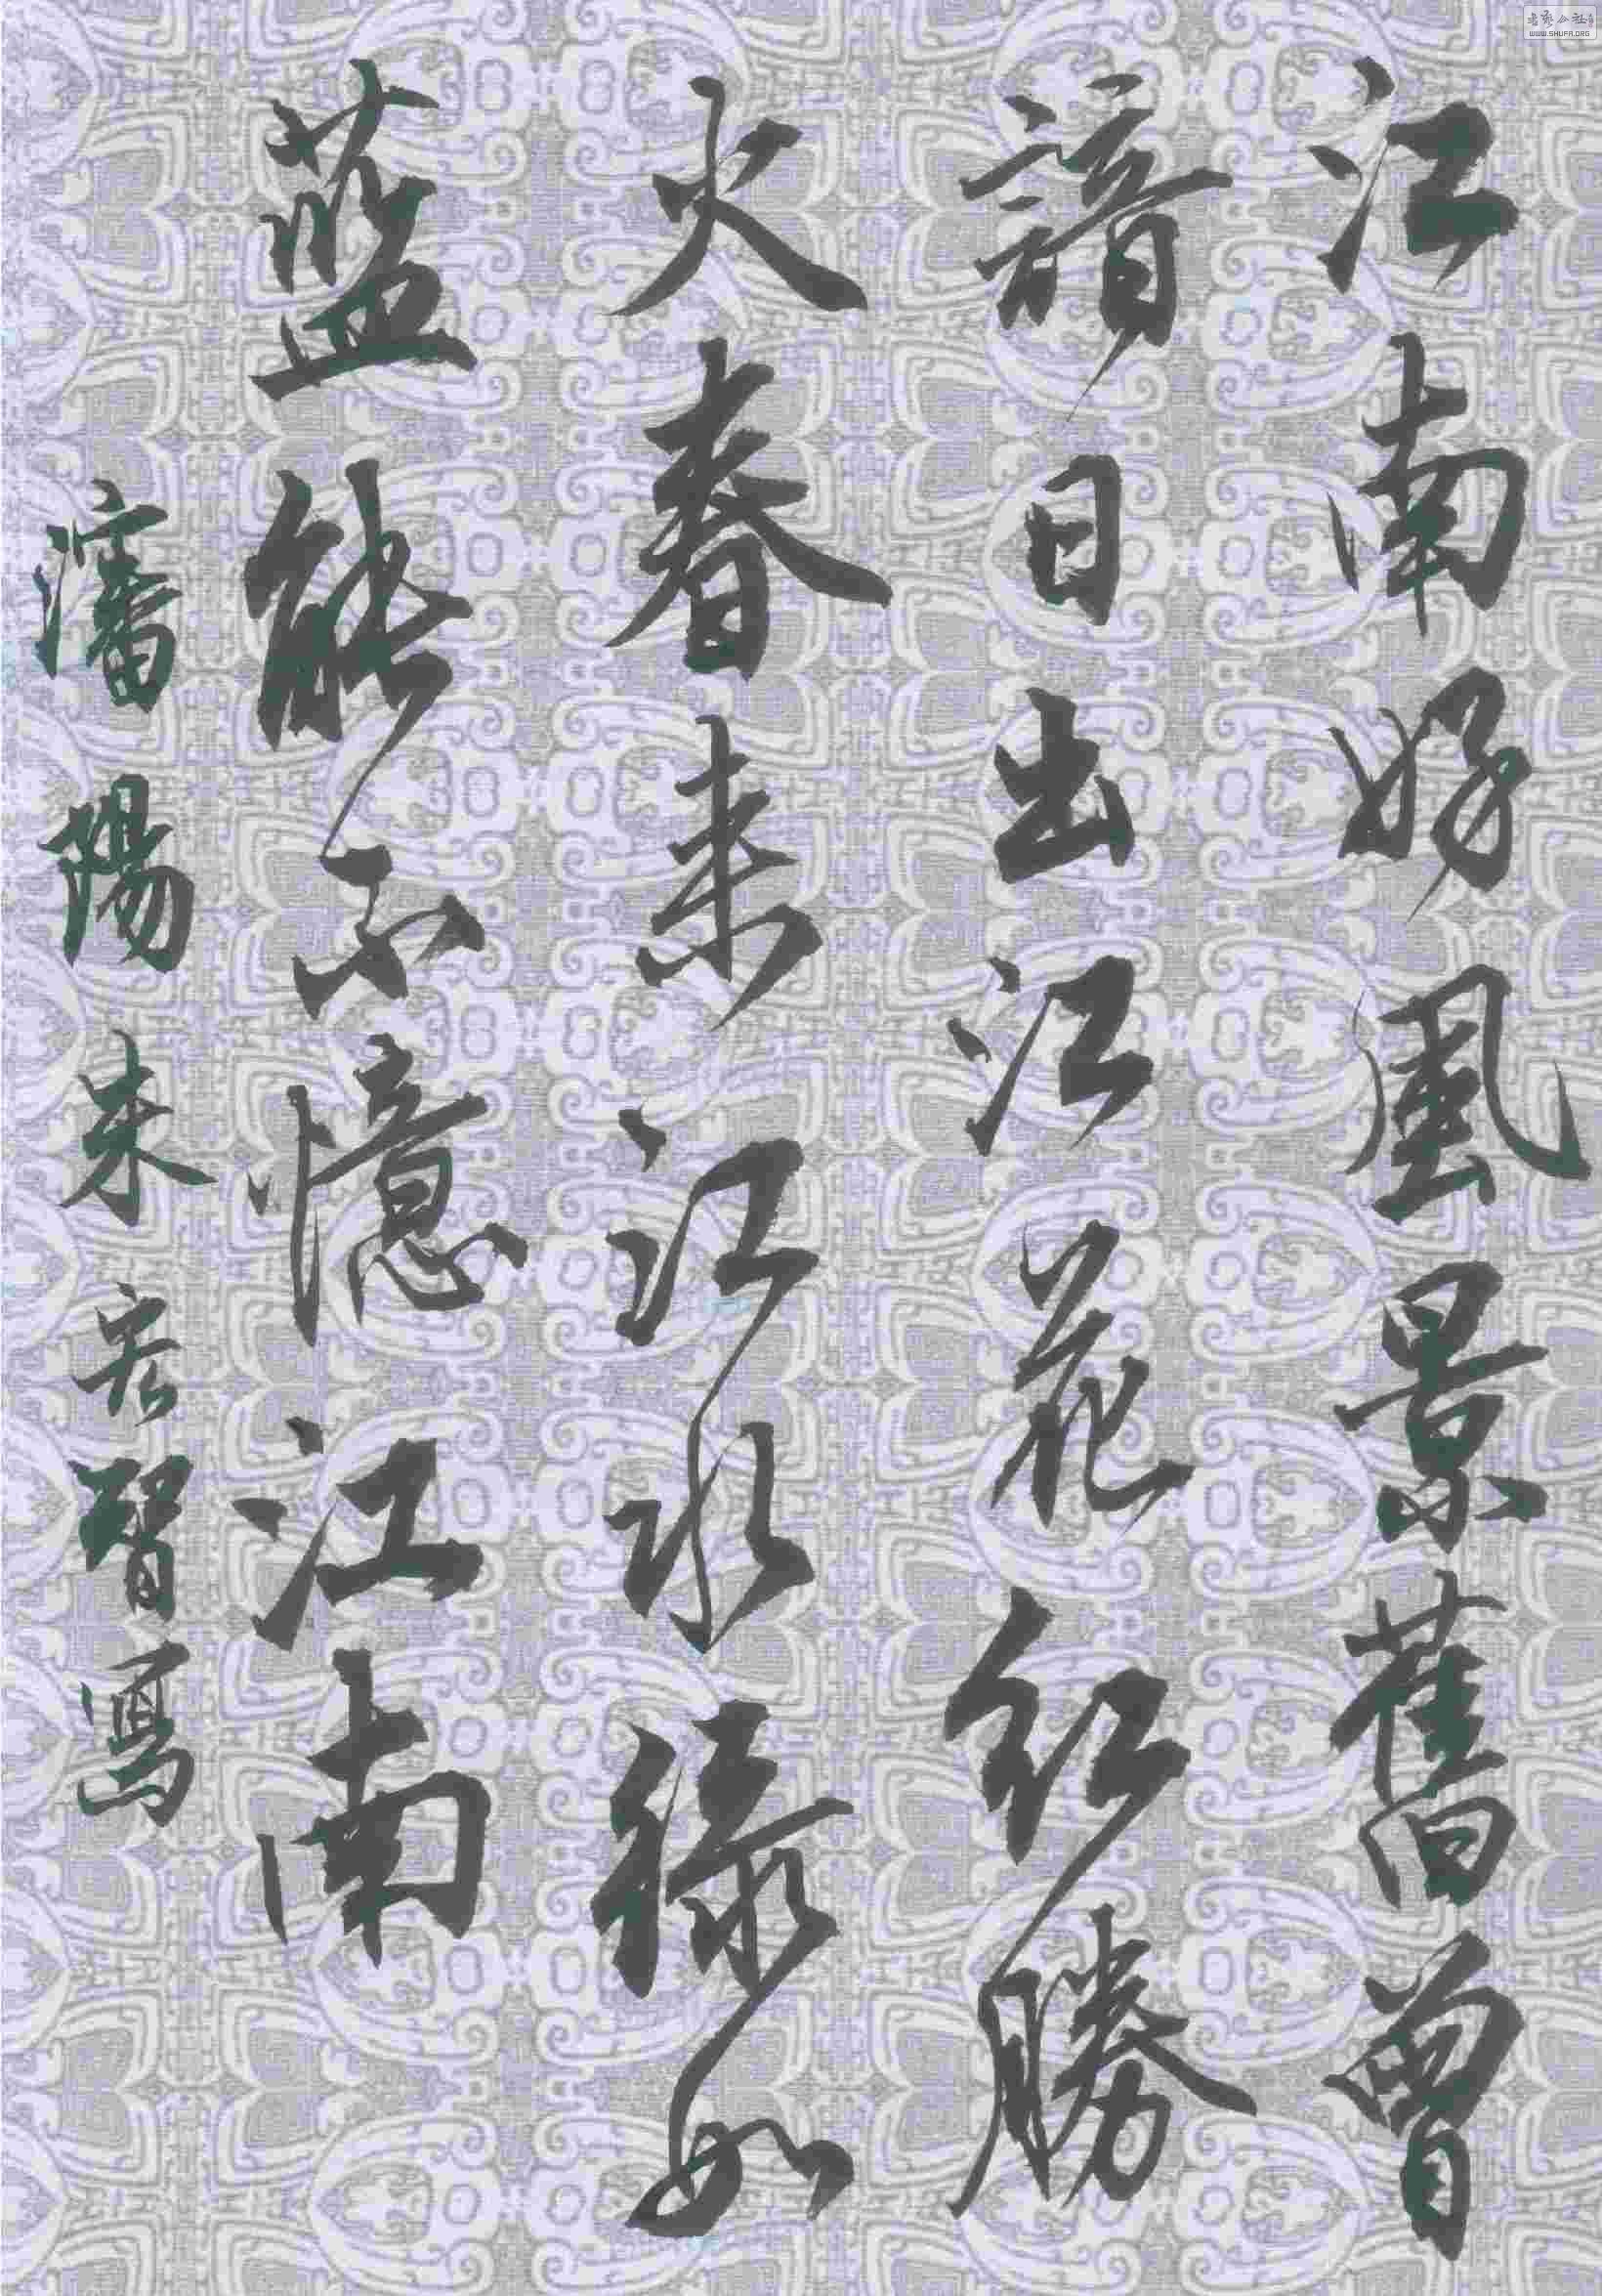 江南好風景舊曾
諳日出江花紅勝
火春来江水綠如
藍能不憶江南
瀋陽朱宏智寫
WWW.SHUFA.ORG